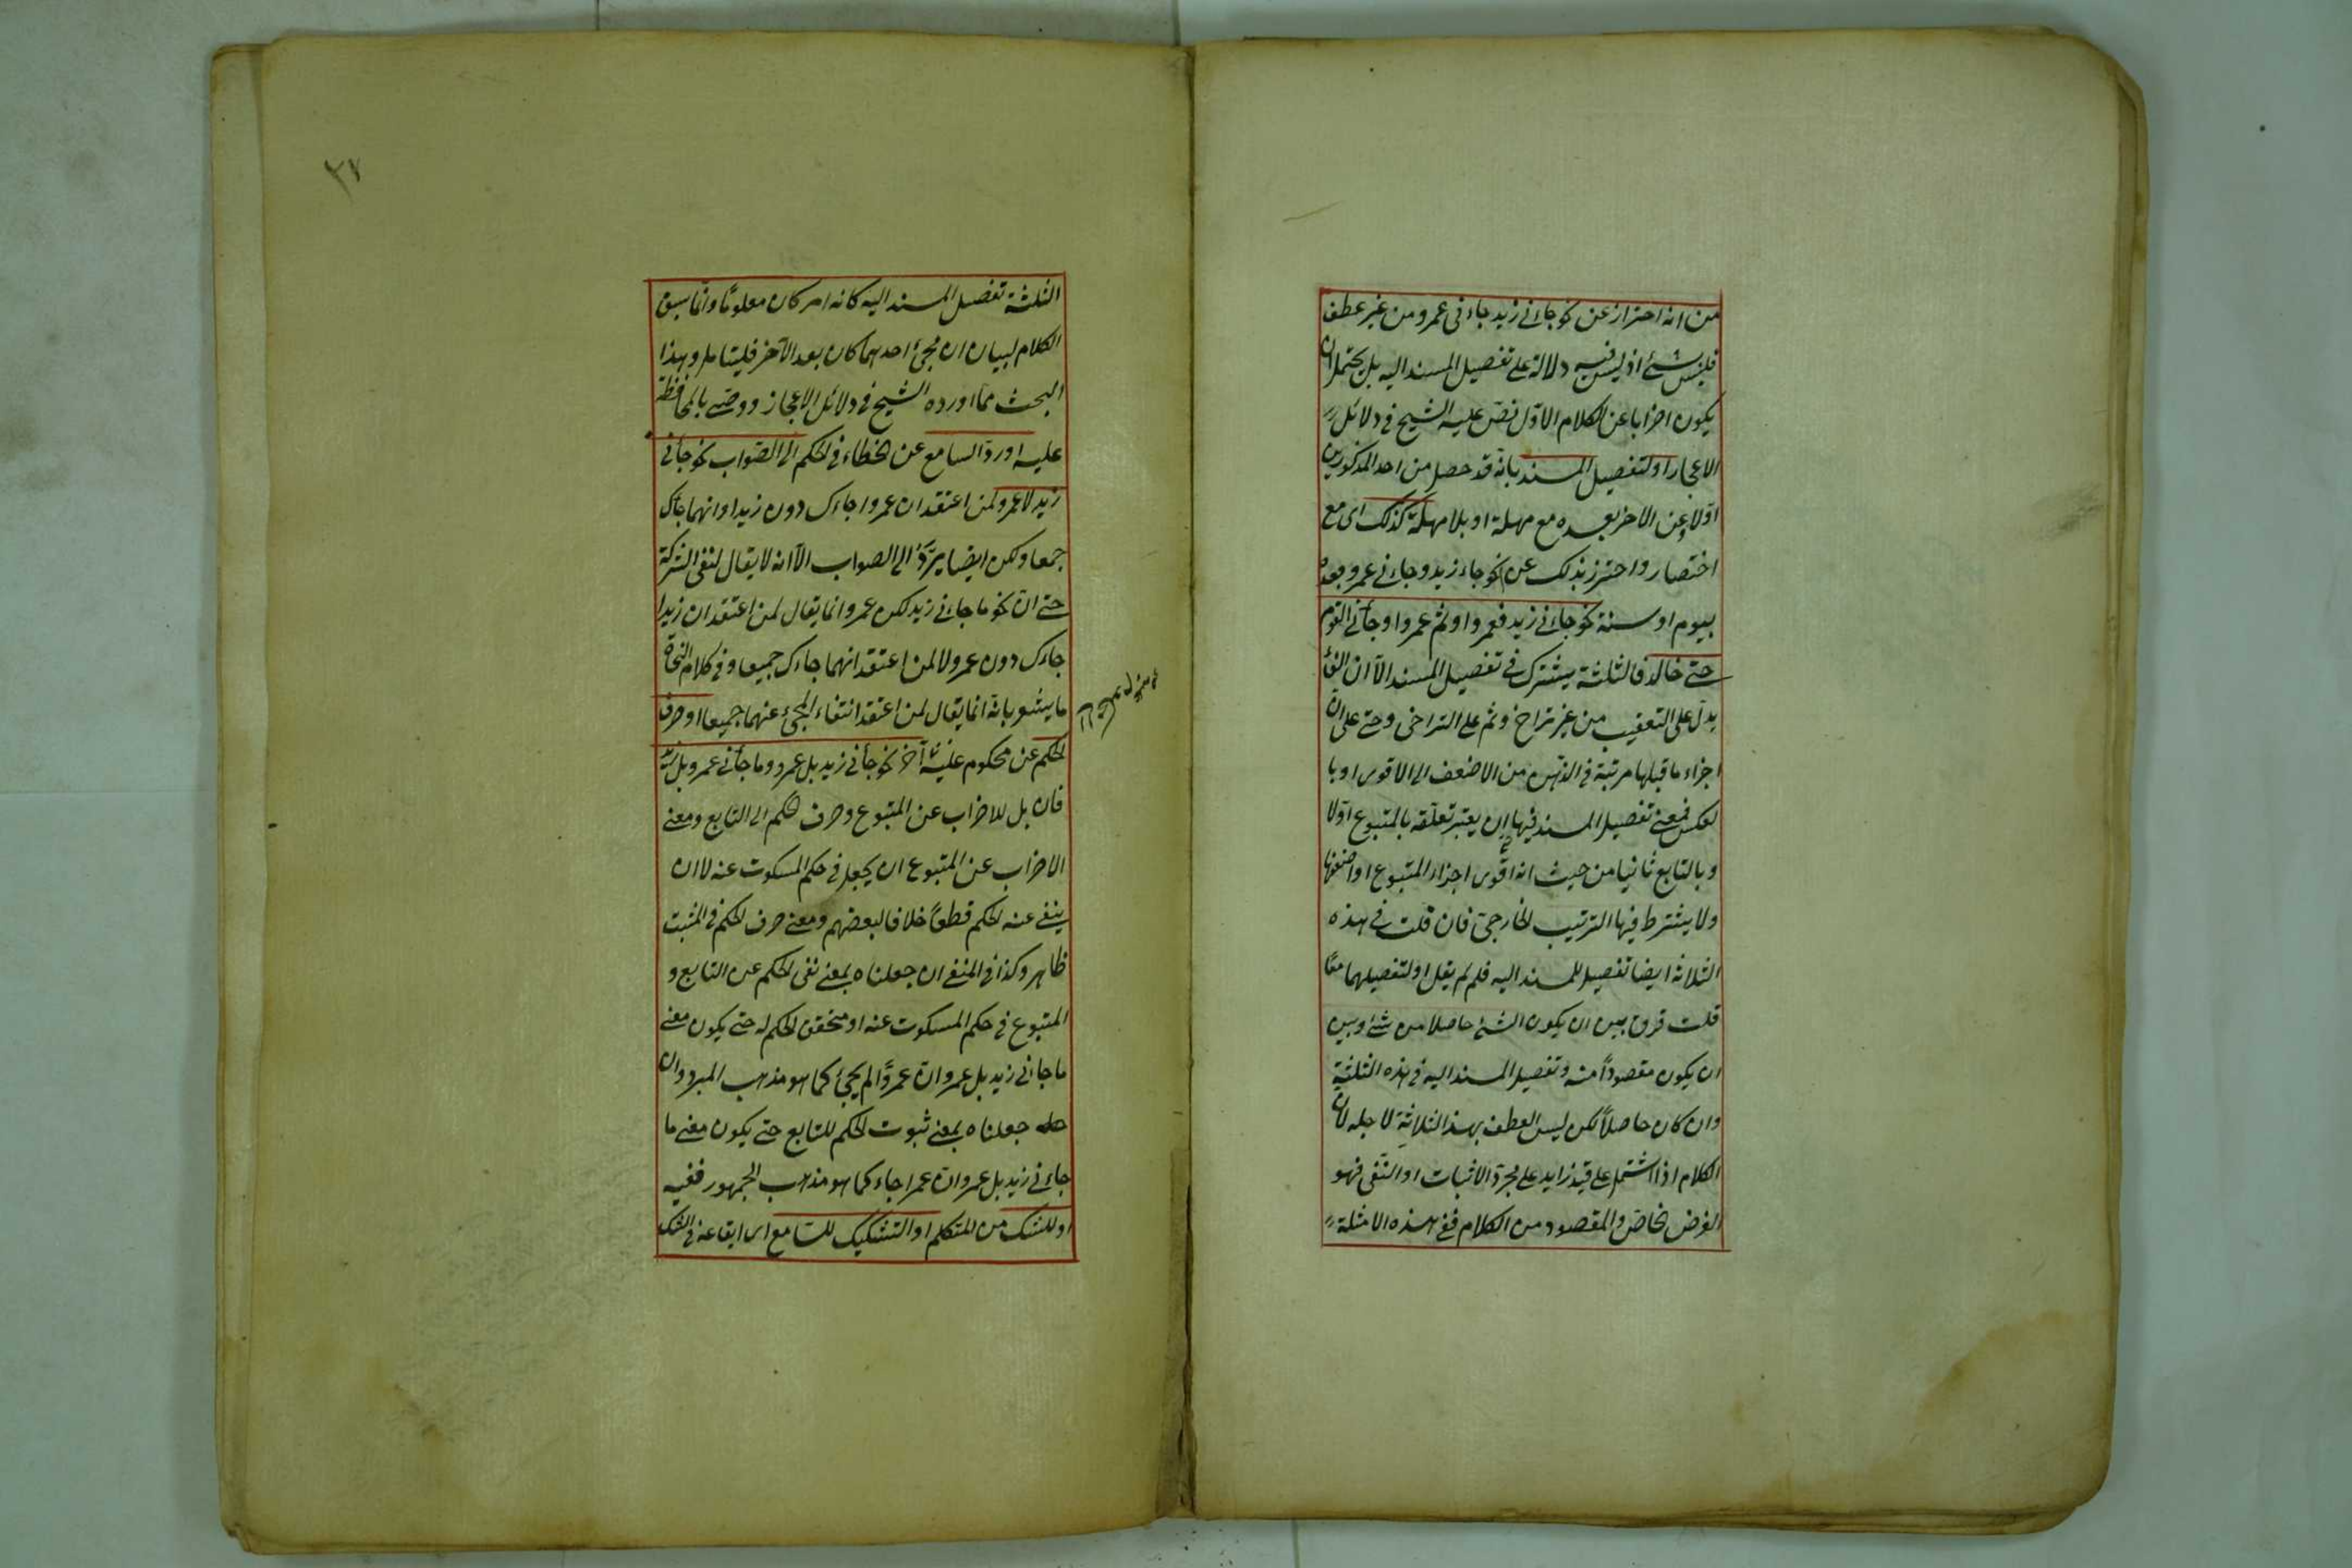 من انه احتراز عن نحو جائنى زيد جاءنى عمرو من غير عطف
فليس بشئ اذ ليس فيه دلالة على تفصيل المسند اليه بل يحتمل ان
يكون اضرابا عن الكلام الاول نص عليه الشيخ فى دلائل
الاعجاز او لتفصيل المسند بانه قد حصل من احد المذكورين
اولا وعن الاخر بعده مع مهلة او بلا مهلة كذلك اى مع
اختصار واحترز بذلك عن نحو جاء زيد وجاءنى عمرو بعده
بيوم او سنة نحو جاءنى زيد فعمرو او ثم عمرو او جأنى القوم
حتى خالد فالثلثة يشترك فى تفصيل المسند الا ان الفاء
يدل على التعقيب من غير تراخ وثم على التراخى وحتى على ان
اجزاء ما قبلها مرتبة فى الذهن من الاضعف الى الاقوى او با
لعكس فمعنى تفصيل المسند فيها ان يعتبر تعلقه بالمتبوع اولا
وبالتابع ثانيا من حيث انه اقوى اجزاء المتبوع او اضعفها
ولا يشترط فيها الترتيب الخارجى فان قلت فى هذه
الثلاثة ايضا تفصيل للمسند اليه فلم لم يقل او لتفصيلهما معا
قلت فرق بين ان يكون الشئ حاصلا من شئ وبين
ان يكون مقصوداً منه وتفصيل المسند اليه فى هذه الثلثة
وان كان حاصلاً لكن ليس العطف بهذه الثلاثة لاجله لان
الكلام اذا اشتمل على قيد زايد على مجرد الاثبات او النفى فهو
الغرض الخاص والمقصود من الكلام ففى هذه الامثلة
٣٧
الثلثة تفصيل المسند اليه كانه امر كان معلوما وانما سيق
الكلام لبيان ان مجئ احدهما كان بعد الآخر فليتامل وهذا
البحث مما اورده الشيخ فى دلائل الاعجاز ووصى بالمحافظة
عليه او رد السامع عن الخطاء فى الحكم الى الصواب نحو جأنى
زيد لا عمرو لمن اعتقد ان عمروا جاءك دون زيد او انهما جأك
جمعا ولكن ايضا يرد الى الصواب الا انه لا يقال لنفى الشركة
حتى ان نحو ما جاءنى زيد لكن عمرو انما يقال لمن اعتقد ان زيدا
جاءك دون عمرو لا لمن اعتقد انهما جاءك جميعا وفى كلام النحاة
ما يشعر بانه انما يقال لمن اعتقد انتفاء المجئ عنهما جميعا او صرف
الحكم عن محكوم عليه آخر نحو جأنى زيد بل عمرو وما جأنى عمرو بل زيد
فان بل للاضراب عن المتبوع وصرف الحكم الى التابع ومعنى
الاضراب عن المتبوع ان يجعل فى حكم المسكوت عنه لا ان
ينفى عنه الحكم قطعاً خلافا لبعضهم ومعنى صرف الحكم فى المثبت
ظاهر وكذا فى المنفى ان جعلناه بمعنى نفى الحكم عن التابع و
المتبوع فى حكم المسكوت عنه او متحقق الحكم له حتى يكون معنى
ما جاءنى زيد بل عمرو ان عمرواً لم يجئ كما هو مذهب المبرد وان
جعلناه بمعنى ثبوت الحكم للتابع حتى يكون معنى ما
جاءنى زيد بل عمرو ان عمرا جاء كما هو مذهب الجمهور ففيه
او للشك من المتكلم او التشكيك للسامع اى ايقاعه فى الشك